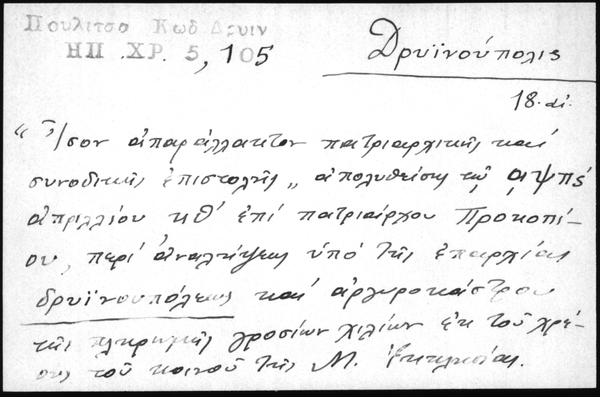 Πουλιτσα Κωδ Δρυιν
ΗΠ .ΧΡ. 5, 105
Δρυϊνούπολις
18. αἰ.
"Ἴσον ἀπαράλλακτον πατριαρχικῆς καί
συνοδικῆς ἐπιστολῆς" ἀπολυθείσης τῷ αψπέ
ἀπριλλίου κθ' ἐπί πατριάρχου Προκοπί-
ου, περί ἀναλήψεως ὑπό τῆς ἐπαρχίας
δρυϊνουπόλεως καί ἀργυροκάστρου
τῆς πληρωμῆς γροσίων χιλίων ἐκ τοῦ χρέ-
ους τοῦ κοινοῦ τῆς Μ. Ἐκκλησίας.